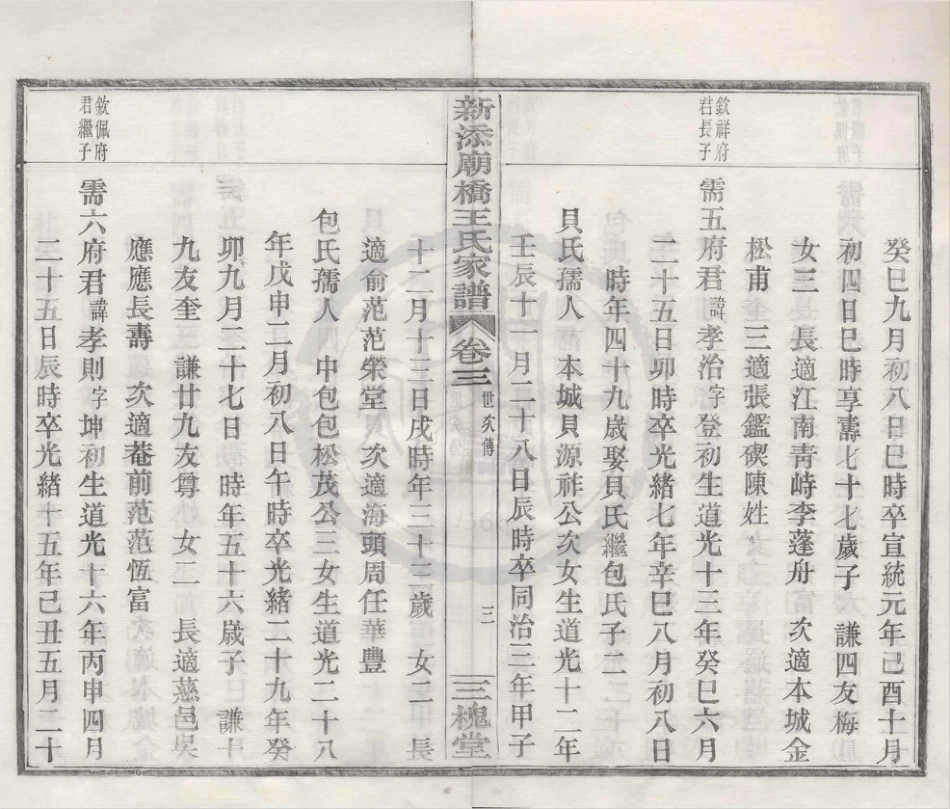 癸巳九月初八日巳時卒宣統元年己酉十月
初四日巳時享壽七十七歲子 謙四友梅
女三 長適江南靑峙李蓬舟 次適本城金
松甫 三適張鑑碶陳姓
欽祥府
君長子
需五府君諱孝治字登初生道光十三年癸巳六月
二十五日卯時卒光緒七年辛巳八月初八日
時年四十九歲娶貝氏繼包氏子二
貝氏孺人 本城貝源祚公次女生道光十二年
壬辰十一月二十八日辰時卒同治三年甲子
新添廟橋王氏家譜 卷三 世次傳 三 三槐堂
十二月十三日戌時年三十三歲 女二 長
適俞范范榮堂 次適海頭周任華豐
包氏孺人 中包包松茂公三女生道光二十八
年戊申二月初八日午時卒光緒二十九年癸
卯九月二十七日 時年五十六歲子 謙十
九友奎 謙廿九友尊 女二 長適慈邑吳
應應長壽 次適菴前范范恆富
欽佩府
君繼子
需六府君諱孝則字坤初生道光十六年丙申四月
二十五日辰時卒光緒十五年己丑五月二十